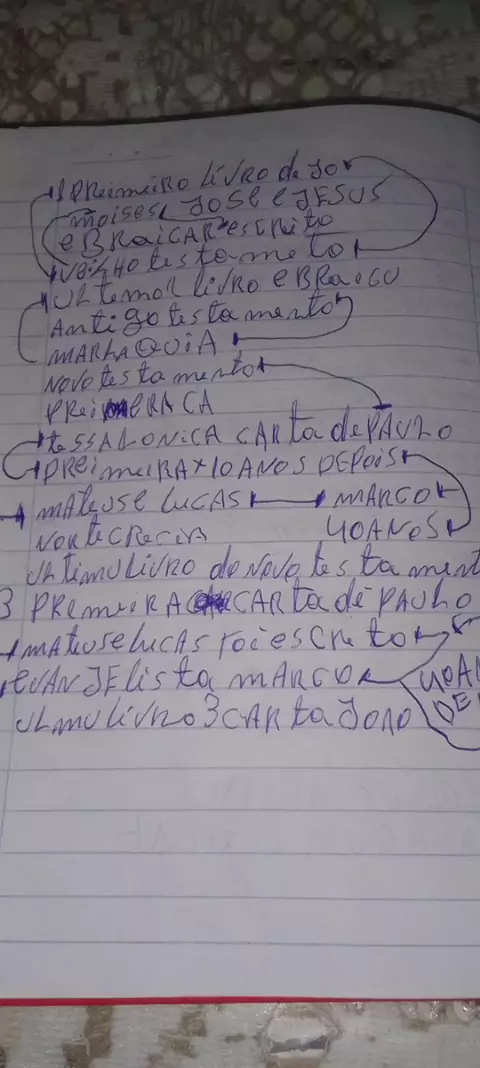 PREIMEIRO LIVRO de JO
moises JOSE e JESUS
e BRAiCAR escrito
VEiLHO testameto
ULtemoR livro e BRAiCU
Antigo testamento
MARLAQUiA
NOVO testamento
PREIMERA CA
tessALONiCA CARta de PAULO
PREimeiRA + 10 ANOS DEPOiS
mateus e LUCAS MARCO
NORteCRECiR 40ANOS
ULtimu LiVRO do NOVO testament
3 PRemeiRA CARta de PAULO
mateus e LUCAS FOi escReto
eVANJElista mARCO 40AN
ULMU LiVRO 3 CARta JOAO DE